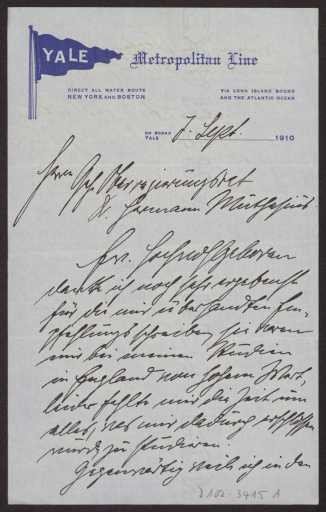 YALE
Metropolitan Line
DIRECT ALL WATER ROUTE
NEW YORK AND BOSTON
VIA LONG ISLAND SOUND
AND THE ATLANTIC OCEAN
ON BOARD
YALE 7. Sept. 1910
Herrn Geh. Oberregierungsrat
Dr. Hermann Muthesius
Ew. Hochwohlgeboren
danke ich noch sehr ergebenst
für die mir übersandten Em-
pfehlungsschreiben, sie waren
mir bei meinen Studien
in England von hohem Wert,
leider fehlte mir die Zeit um
alles, was mir dadurch erschlossen
wurde zu studieren.
Gegenwärtig weile ich in den
D 102-3415 A